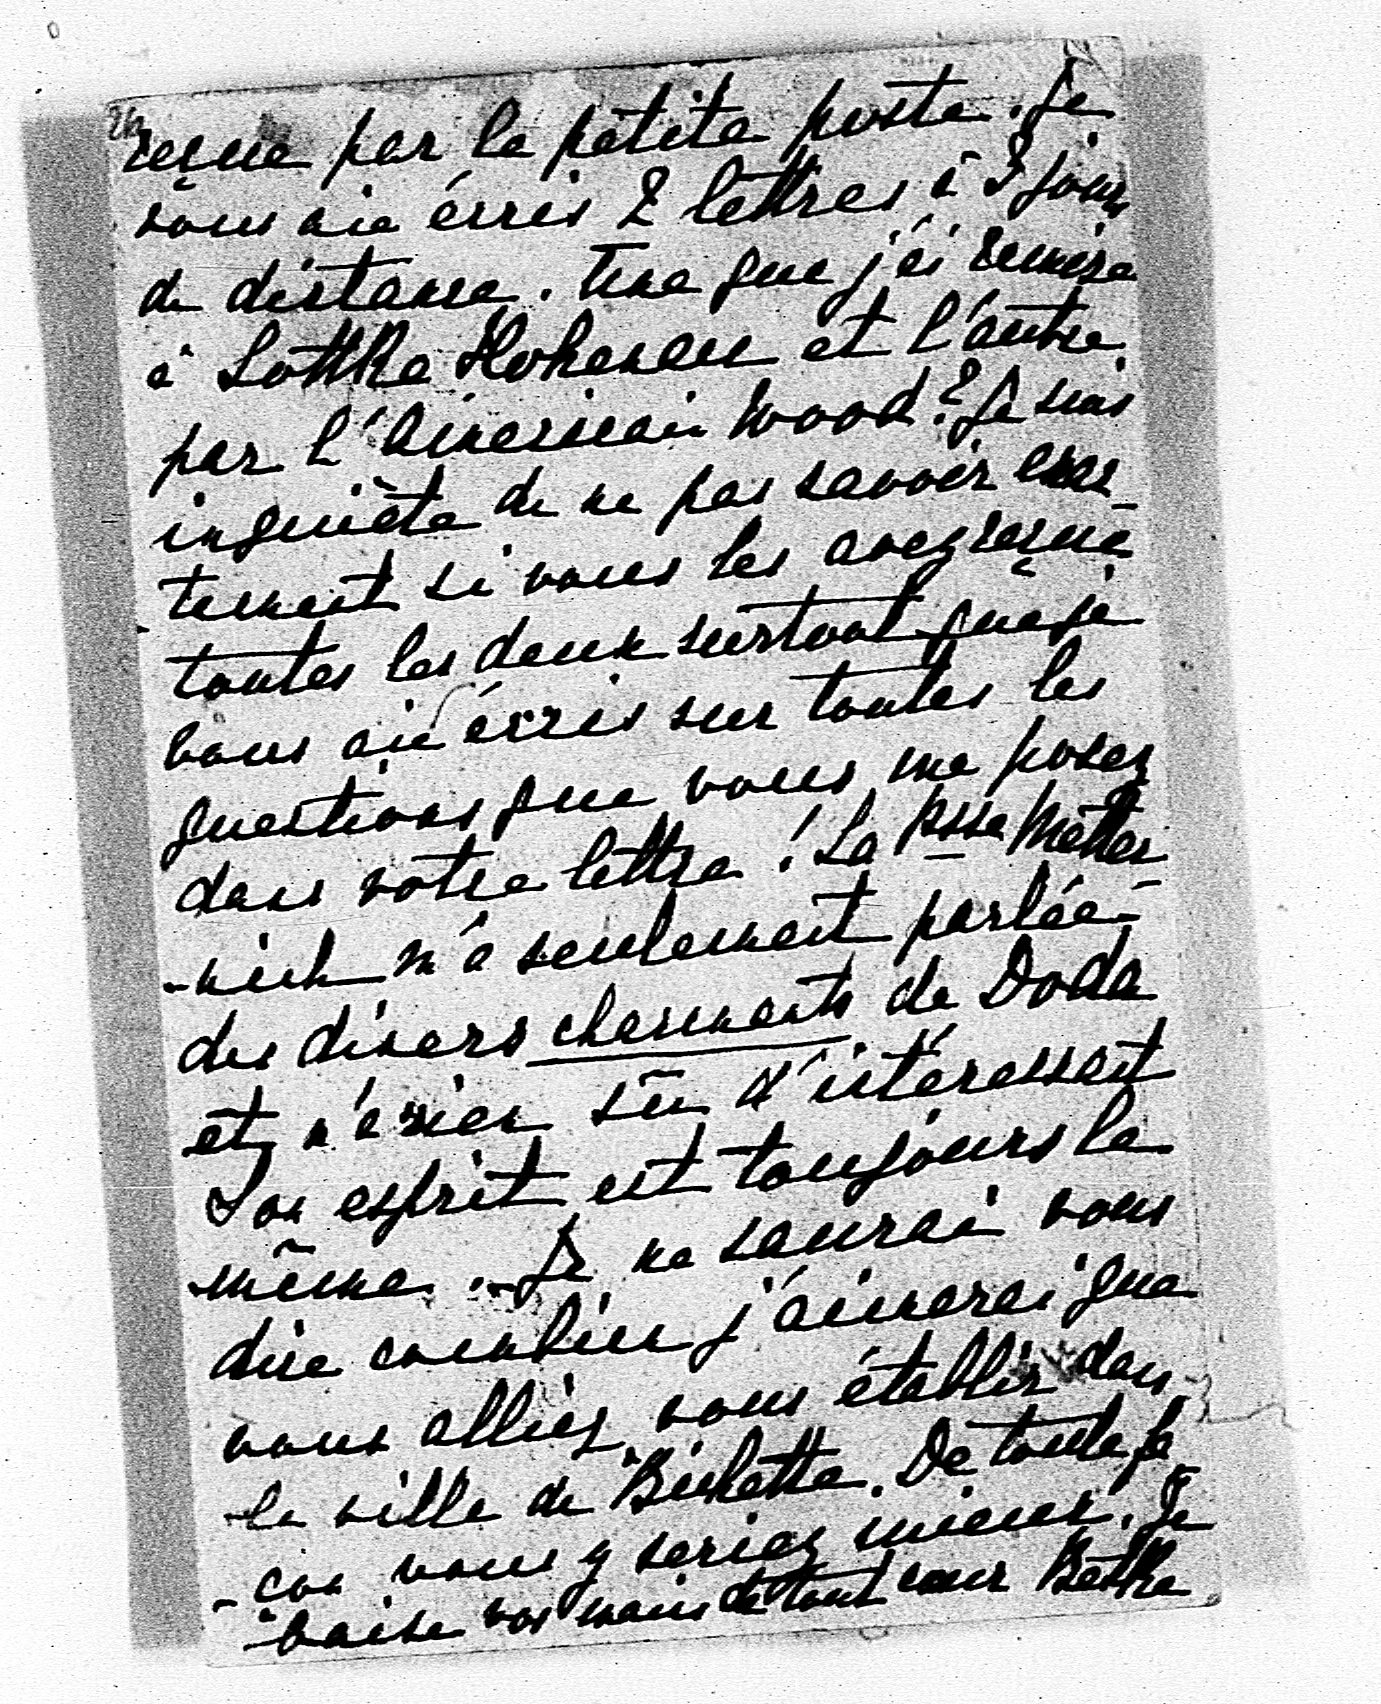 reçue par la petite poste. Je
vous aie écris 2 lettres à 3 jours
de distance. Une que j'ai remise
à Lottka Hohenau et l'autre
par l'américain Wood? Je suis
inquiète de ne pas savoir exac-
tement si vous les avez reçue
toutes les deux surtout que je
vous aie écris sur toutes les
questions que vous me posez
dans votre lettre! La Psse Metter
-nich m'a seulement parlée
des diners charmants de Doda
et n'a rien sû d'intéressant
Son esprit est toujours le
même. Je ne saurai vous
dire combien j'aimerai que
vous alliez vous établir dans
la ville de Bichette. De toute fa
-çon vous y seriez mieux. Je
baise vos mains de tout cœur Betka